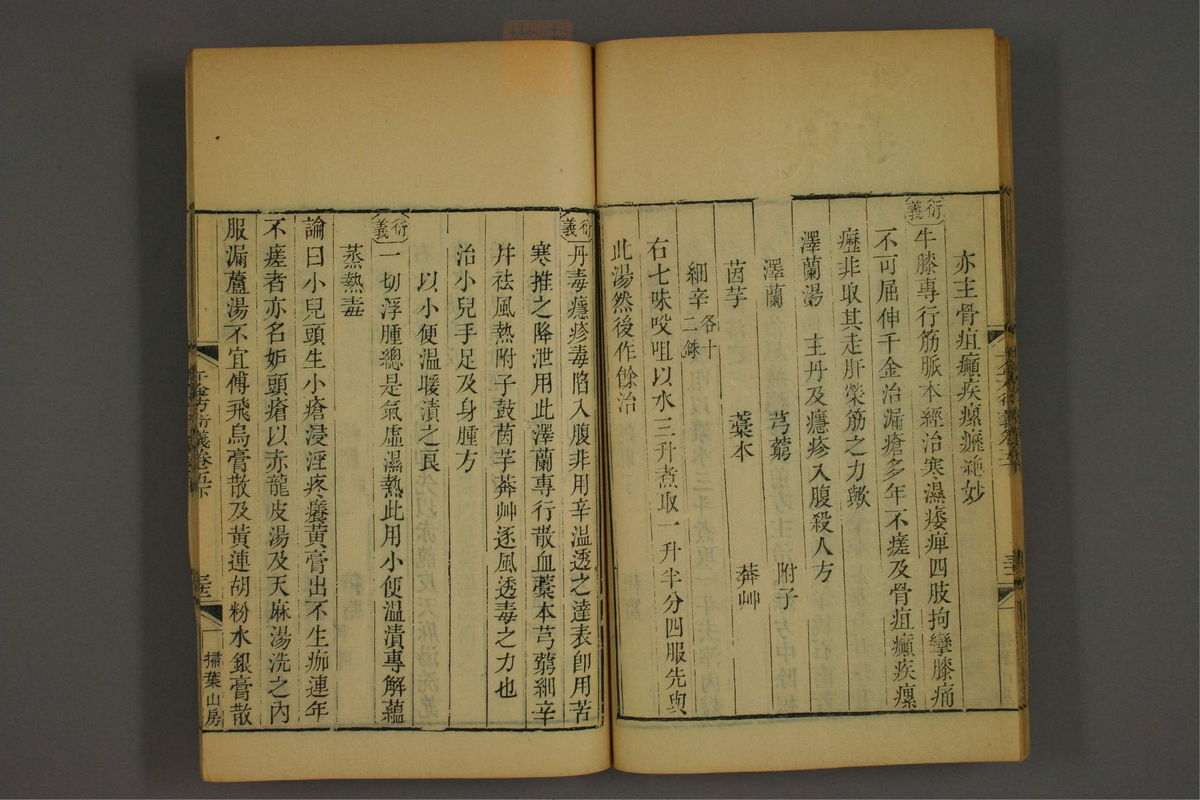 亦主骨疽癲疾瘰癧絶妙
衍義牛膝專行筋脈本經治寒濕痿痺四肢拘攣膝痛
不可屈伸千金治漏瘡多年不瘥及骨疽癲疾瘰
癧非取其走肝榮筋之力歟
澤蘭湯 主丹及癮疹入腹殺人方
澤蘭 芎藭 附子
茵芋 藁本 莽艸
細辛各十二銖
右七味㕮咀以水三升煮取一升半分四服先與
此湯然後作餘治
衍義丹毒癮疹毒陷入腹非用辛溫透之達表卽用苦
寒推之降泄用此澤蘭專行散血藁本芎藭細辛
幷祛風熱附子鼓茵芋莽艸逐風透毒之力也
治小兒手足及身腫方
以小便溫暖漬之良
衍義一切浮腫總是氣虛濕熱此用小便溫漬專解蘊
蒸熱毒
論曰小兒頭生小瘡浸淫疼癢黃膏出不生痂連年
不瘥者亦名妬頭瘡以赤龍皮湯及天麻湯洗之內
服漏蘆湯不宜傅飛烏膏散及黃連胡粉水銀膏散
千金方衍義卷五下
掃葉山房